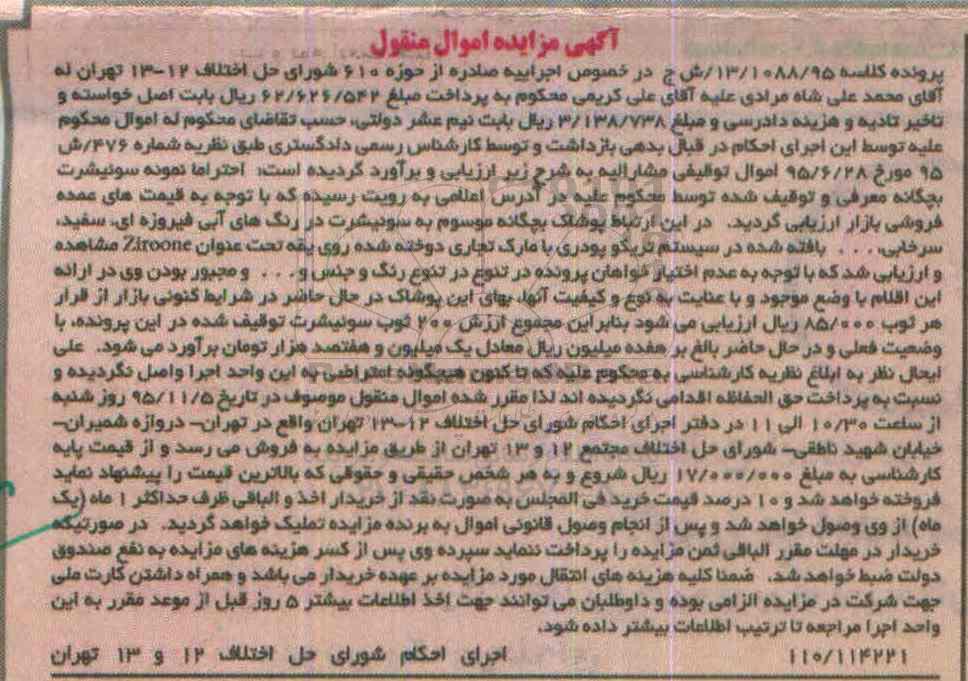 آگهی مزایده اموال منقول
پرونده کلاسه ۱۳/۱۰۸۸/۹۵/ش ج در خصوص اجراییه صادره از حوزه ۶۱۰ شورای حل اختلاف ۱۲-۱۳ تهران له
آقای محمد علی شاه مرادی علیه آقای علی کریمی محکوم به پرداخت مبلغ ۶۲/۶۲۶/۵۴۲ ریال بابت اصل خواسته و
تاخیر تادیه و هزینه دادرسی و مبلغ ۳/۱۳۸/۷۳۸ ریال بابت نیم عشر دولتی، حسب تقاضای محکوم له اموال محکوم
علیه توسط این اجرای احکام در قبال بدهی بازداشت و توسط کارشناس رسمی دادگستری طبق نظریه شماره ۴۷۶/ش
۹۵ مورخ ۹۵/۶/۲۸ اموال توقیفی مشارالیه به شرح زیر ارزیابی و برآورد گردیده است: احتراما نمونه سوئیشرت
بچگانه معرفی و توقیف شده توسط محکوم علیه در آدرس اعلامی به رویت رسیده که با توجه به قیمت های عمده
فروشی بازار ارزیابی گردید. در این ارتباط پوشاک بچگانه موسوم به سوئیشرت در رنگ های آبی فیروزه ای، سفید،
سرخابی، . . . بافته شده در سیستم تریکو پودری با مارک تجاری دوخته شده روی یقه تحت عنوان Ziroone مشاهده
و ارزیابی شد که با توجه به عدم اختیار خواهان پرونده در تنوع در تنوع رنگ و جنس و . . . و مجبور بودن وی در ارائه
این اقلام با وضع موجود و با عنایت به نوع و کیفیت آنها، بهای این پوشاک در حال حاضر در شرایط کنونی بازار از قرار
هر ثوب ۸۵/۰۰۰ ریال ارزیابی می شود بنابراین مجموع ارزش ۲۰۰ ثوب سوئیشرت توقیف شده در این پرونده، با
وضعیت فعلی و در حال حاضر بالغ بر هفده میلیون ریال معادل یک میلیون و هفتصد هزار تومان برآورد می شود. علی
ایحال نظر به ابلاغ نظریه کارشناسی به محکوم علیه که تا کنون هیچگونه اعتراضی به این واحد اجرا واصل نگردیده و
نسبت به پرداخت حق الحفاظه اقدامی نگردیده اند لذا مقرر شده اموال منقول موصوف در تاریخ ۹۵/۱۱/۵ روز شنبه
از ساعت ۱۰/۳۰ الی ۱۱ در دفتر اجرای احکام شورای حل اختلاف ۱۲-۱۳ تهران واقع در تهران- دروازه شمیران-
خیابان شهید ناطقی- شورای حل اختلاف مجتمع ۱۲ و ۱۳ تهران از طریق مزایده به فروش می رسد و از قیمت پایه
کارشناسی به مبلغ ۱۷/۰۰۰/۰۰۰ ریال شروع و به هر شخص حقیقی و حقوقی که بالاترین قیمت را پیشنهاد نماید
فروخته خواهد شد و ۱۰ درصد قیمت خرید فی المجلس به صورت نقد از خریدار اخذ و الباقی ظرف حداکثر ۱ ماه (یک
ماه) از وی وصول خواهد شد و پس از انجام وصول قانونی اموال به برنده مزایده تملیک خواهد گردید. در صورتیکه
خریدار در مهلت مقرر الباقی ثمن مزایده را پرداخت ننماید سپرده وی پس از کسر هزینه های مزایده به نفع صندوق
دولت ضبط خواهد شد. ضمنا کلیه هزینه های انتقال مورد مزایده بر عهده خریدار می باشد و همراه داشتن کارت ملی
جهت شرکت در مزایده الزامی بوده و داوطلبان می توانند جهت اخذ اطلاعات بیشتر ۵ روز قبل از موعد مقرر به این
واحد اجرا مراجعه تا ترتیب اطلاعات بیشتر داده شود.
۱۱۰/۱۱۴۲۲۱ اجرای احکام شورای حل اختلاف ۱۲ و ۱۳ تهران